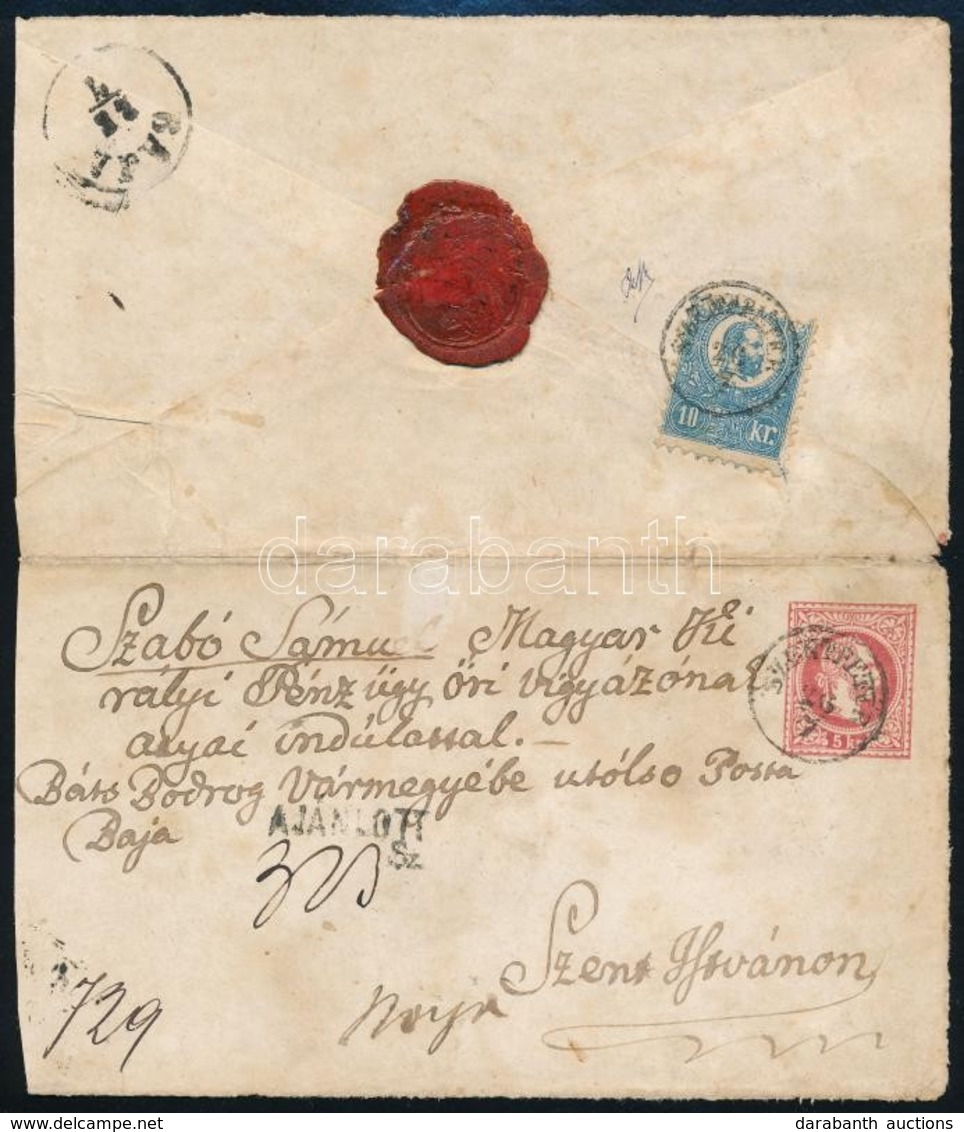 BAJA
22
10 kr.
darabanth
Szabó Sámuel Magyar Ki
rályi Pénz ügy őri vigyázónal
atyai indúlattal. —
Báts Bodrog Vármegyébe utólso Posta
Baja
5 kr
AJÁNLOTT
Sz
Szent Istvánon
729
darabanth auctions